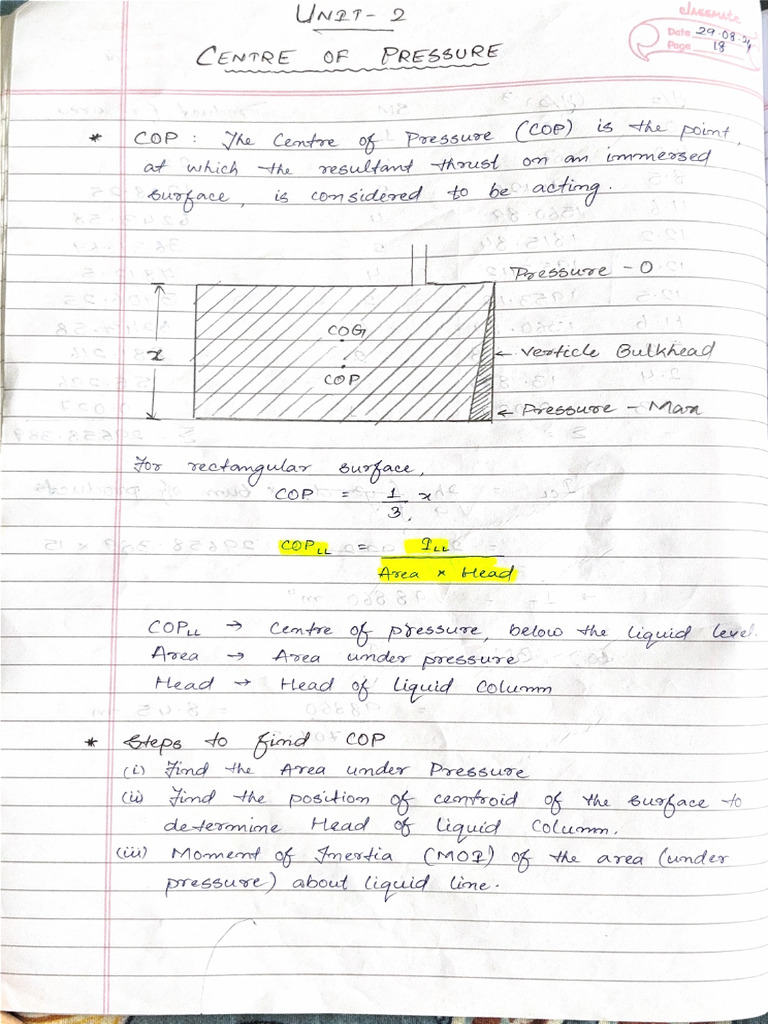 classmate
Date 29.08.24
Page 18
UNIT - 2
CENTRE OF PRESSURE
* COP : The Centre of Pressure (COP) is the point,
at which the resultant thrust on an immersed
surface, is considered to be acting.
Pressure - 0
COG
x
← Verticle Bulkhead
COP
← Pressure - Max
For rectangular surface,
COP = 1/3 x
COP_LL = I_LL / Area × Head
COP_LL → Centre of pressure, below the liquid level.
Area → Area under pressure
Head → Head of liquid column
* Steps to find COP
(i) Find the Area under Pressure
(ii) Find the position of centroid of the surface to
determine Head of liquid column.
(iii) Moment of Inertia (MOI) of the area (under
pressure) about liquid line.